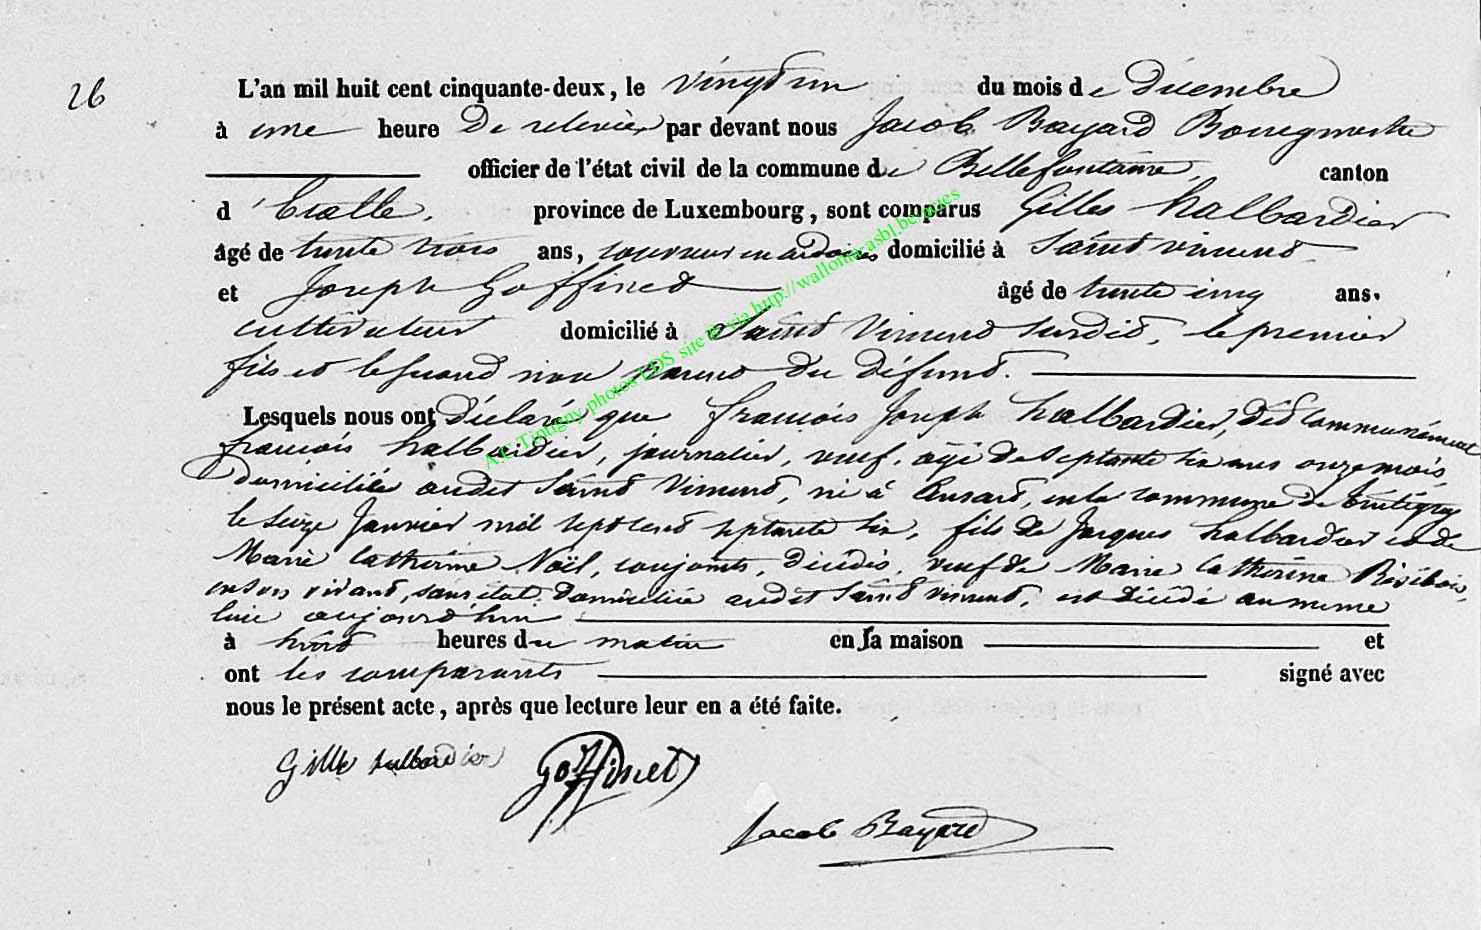 26
L'an mil huit cent cinquante-deux, le vingt un du mois de Décembre
à une heure De relevée, par devant nous Jacob Bayard Bourgmestre
officier de l'état civil de la commune de Bellefontaine, canton
d'Etalle, province de Luxembourg, sont comparus Gilles halbardier
âgé de trente trois ans, couvreur en ardoises, domicilié à Saint vincent
et Joseph Goffinet âgé de trente cinq ans.
cultivateur domicilié à Saint Vincent susdit, le premier
fils et le second non parent du défunt.
Lesquels nous ont Déclaré que françois Joseph halbardier, dit communément
françois halbardier, journalier, veuf, agé de septante six ans onze mois,
domicilié audit Saint Vincent, né à Ansart, en la commune de Tintigny
le seize Janvier mil sept cent septante six, fils de Jacques halbardier et de
Marie Catherine Noël, conjoints, décédés, veuf de Marie Catherine Résibois,
en son vivant, sans état, domiciliée audit Saint vincent, est décédé au meme
lieu aujourd'hui
à huit heures du matin en sa maison et
ont les comparants signé avec
nous le présent acte, après que lecture leur en a été faite.
Gille halbardier Goffinet
Jacob Bayard
A.C. Tintigny photos LDS site @ via http://wallonia-asbl.be/actes